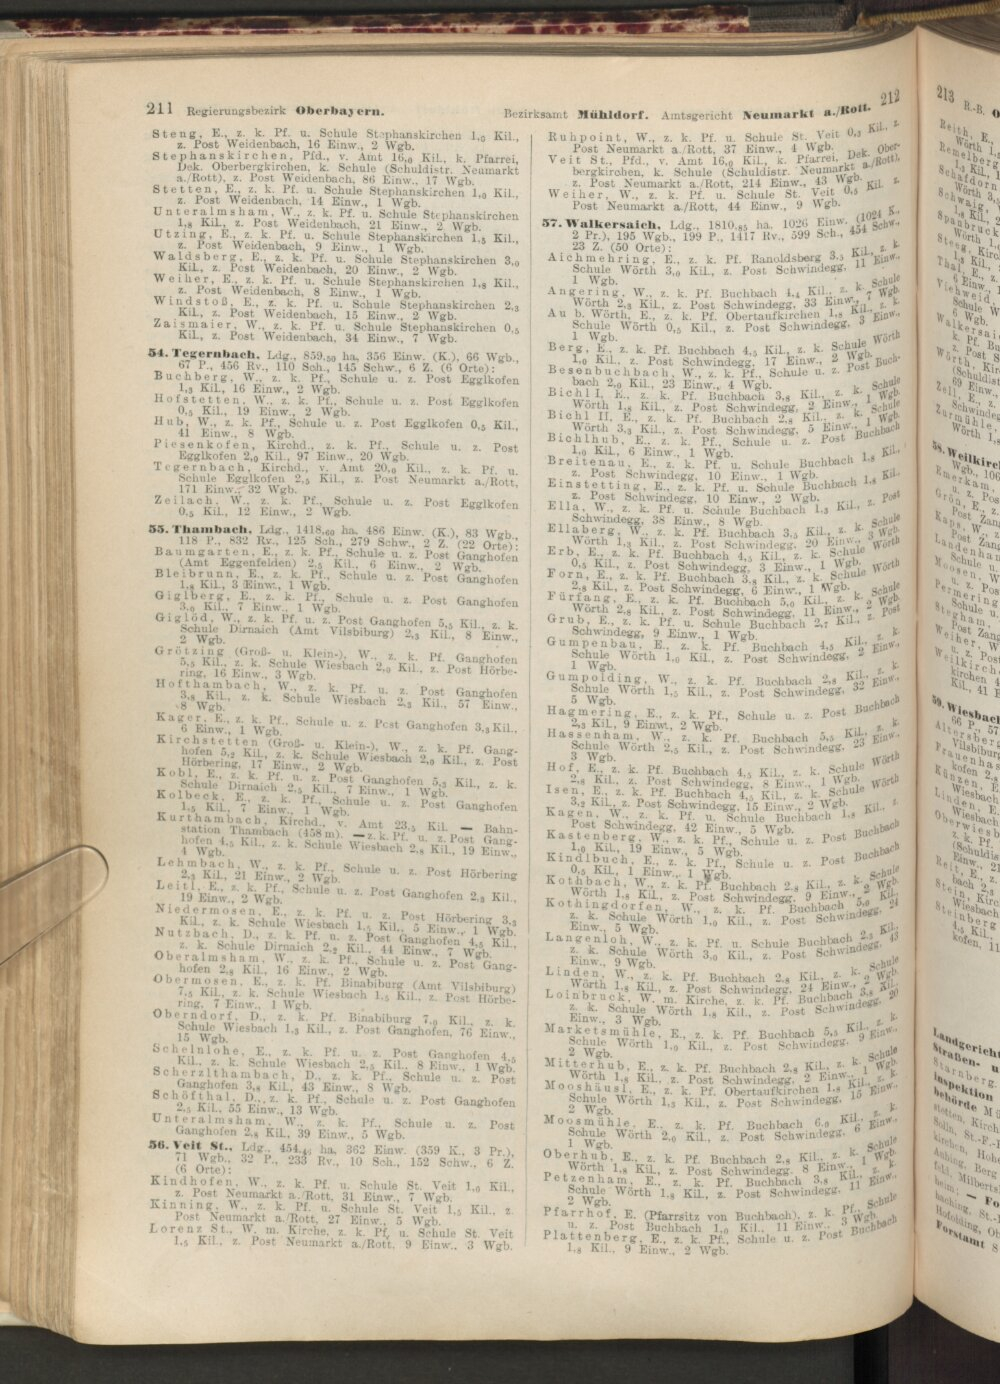 211 Regierungsbezirk Oberbayern.
Steng, E., z. k. Pf. u. Schule Stephanskirchen 1,0 Kil.,
z. Post Weidenbach, 16 Einw., 2 Wgb.
Stephanskirchen, Pfd., v. Amt 16,0 Kil., k. Pfarrei,
Dek. Oberbergkirchen, k. Schule (Schuldistr. Neumarkt
a./Rott), z. Post Weidenbach, 86 Einw., 17 Wgb.
Stetten, E., z. k. Pf. u. Schule Stephanskirchen 1,0 Kil.,
z. Post Weidenbach, 14 Einw., 1 Wgb.
Unteralmsham, W., z. k. Pf. u. Schule Stephanskirchen
1,8 Kil., z. Post Weidenbach, 21 Einw., 2 Wgb.
Utzing, E., z. k. Pf. u. Schule Stephanskirchen 1,5 Kil.,
z. Post Weidenbach, 9 Einw., 1 Wgb.
Waldsberg, E., z. k. Pf. u. Schule Stephanskirchen 3,0
Kil., z. Post Weidenbach, 20 Einw., 2 Wgb.
Weiher, E., z. k. Pf. u. Schule Stephanskirchen 1,8 Kil.,
z. Post Weidenbach, 8 Einw., 1 Wgb.
Windstoß, E., z. k. Pf. u. Schule Stephanskirchen 2,3
Kil., z. Post Weidenbach, 15 Einw., 2 Wgb.
Zaismaier, W., z. k. Pf. u. Schule Stephanskirchen 0,5
Kil., z. Post Weidenbach, 34 Einw., 7 Wgb.
54. Tegernbach, Ldg., 859,50 ha, 356 Einw. (K.), 66 Wgb.,
67 P., 456 Rv., 110 Sch., 145 Schw., 6 Z. (6 Orte):
Buchberg, W., z. k. Pf., Schule u. z. Post Egglkofen
1,0 Kil., 16 Einw., 2 Wgb.
Hofstetten, W., z. k. Pf., Schule u. z. Post Egglkofen
0,5 Kil., 19 Einw., 2 Wgb.
Hub, W., z. k. Pf., Schule u. z. Post Egglkofen 0,5 Kil.,
41 Einw., 8 Wgb.
Piesenkofen, Kirchd., z. k. Pf., Schule u. z. Post
Egglkofen 2,0 Kil., 97 Einw., 20 Wgb.
Tegernbach, Kirchd., v. Amt 20,0 Kil., z. k. Pf. u.
Schule Egglkofen 2,5 Kil., z. Post Neumarkt a./Rott,
171 Einw., 32 Wgb.
Zeilach, W., z. k. Pf., Schule u. z. Post Egglkofen
0,5 Kil., 12 Einw., 2 Wgb.
55. Thambach, Ldg., 1418,60 ha, 486 Einw. (K.), 83 Wgb.,
118 P., 832 Rv., 125 Sch., 279 Schw., 2 Z. (22 Orte):
Baumgarten, E., z. k. Pf., Schule u. z. Post Ganghofen
(Amt Eggenfelden) 2,5 Kil., 6 Einw., 2 Wgb.
Bleibrunn, E., z. k. Pf., Schule u. z. Post Ganghofen
1,8 Kil., 3 Einw., 1 Wgb.
Giglberg, E., z. k. Pf., Schule u. z. Post Ganghofen
3,0 Kil., 7 Einw., 1 Wgb.
Giglöd, W., z. k. Pf. u. z. Post Ganghofen 5,5 Kil., z. k.
Schule Dirnaich (Amt Vilsbiburg) 2,3 Kil., 8 Einw.,
2 Wgb.
Grötzing (Groß- u. Klein-), W., z. k. Pf. Ganghofen
5,5 Kil., z. k. Schule Wiesbach 2,0 Kil., z. Post Hörbe-
ring, 16 Einw., 3 Wgb.
Hofthambach, W., z. k. Pf. u. z. Post Ganghofen
3,8 Kil., z. k. Schule Wiesbach 2,3 Kil., 57 Einw.,
8 Wgb.
Kager, E., z. k. Pf., Schule u. z. Post Ganghofen 3,3 Kil.,
6 Einw., 1 Wgb.
Kirchstetten (Groß- u. Klein-), W., z. k. Pf. Gang-
hofen 5,2 Kil., z. k. Schule Wiesbach 2,0 Kil., z. Post
Hörbering, 17 Einw., 2 Wgb.
Kobl, E., z. k. Pf. u. z. Post Ganghofen 5,3 Kil., z. k.
Schule Dirnaich 2,5 Kil., 7 Einw., 1 Wgb.
Kolbeck, E., z. k. Pf., Schule u. z. Post Ganghofen
1,5 Kil., 7 Einw., 1 Wgb.
Kurthambach, Kirchd., v. Amt 23,5 Kil. — Bahn-
station Thambach (458 m). — z. k. Pf. u. z. Post Gang-
hofen 4,5 Kil., z. k. Schule Wiesbach 2,8 Kil., 19 Einw.,
4 Wgb.
Lehmbach, W., z. k. Pf., Schule u. z. Post Hörbering
2,3 Kil., 21 Einw., 2 Wgb.
Leitl, E., z. k. Pf., Schule u. z. Post Ganghofen 2,3 Kil.,
19 Einw., 2 Wgb.
Niedermosen, E., z. k. Pf. u. z. Post Hörbering 3,3
Kil., z. k. Schule Wiesbach 1,5 Kil., 5 Einw., 1 Wgb.
Nutzbach, D., z. k. Pf. u. z. Post Ganghofen 4,5 Kil.,
z. k. Schule Dirnaich 2,2 Kil., 44 Einw., 7 Wgb.
Oberalmsham, W., z. k. Pf., Schule u. z. Post Gang-
hofen 2,8 Kil., 16 Einw., 2 Wgb.
Obermosen, E., z. k. Pf. Binabiburg (Amt Vilsbiburg)
7,5 Kil., z. k. Schule Wiesbach 1,5 Kil., z. Post Hörbe-
ring, 7 Einw., 1 Wgb.
Oberndorf, D., z. k. Pf. Binabiburg 7,0 Kil., z. k.
Schule Wiesbach 1,3 Kil., z. Post Ganghofen, 76 Einw.,
15 Wgb.
Schelnlohe, E., z. k. Pf. u. z. Post Ganghofen 4,5
Kil., z. k. Schule Wiesbach 2,5 Kil., 8 Einw., 1 Wgb.
Scherzlthambach, D., z. k. Pf., Schule u. z. Post
Ganghofen 3,8 Kil., 43 Einw., 8 Wgb.
Schöfthal, D., z. k. Pf., Schule u. z. Post Ganghofen
2,5 Kil., 55 Einw., 13 Wgb.
Unteralmsham, W., z. k. Pf., Schule u. z. Post
Ganghofen 2,8 Kil., 39 Einw., 5 Wgb.
56. Veit St., Ldg., 454,46 ha, 362 Einw. (359 K., 3 Pr.),
71 Wgb., 32 P., 233 Rv., 10 Sch., 152 Schw., 6 Z.
(6 Orte):
Kindhofen, W., z. k. Pf. u. Schule St. Veit 1,0 Kil.,
z. Post Neumarkt a./Rott, 31 Einw., 7 Wgb.
Kinning, W., z. k. Pf. u. Schule St. Veit 1,5 Kil., z.
Post Neumarkt a./Rott, 27 Einw., 5 Wgb.
Lorenz St., W. m. Kirche, z. k. Pf. u. Schule St. Veit
1,5 Kil., z. Post Neumarkt a./Rott, 9 Einw., 3 Wgb.
Bezirksamt Mühldorf. Amtsgericht Neumarkt a./Rott. 212
Ruhpoint, W., z. k. Pf. u. Schule St. Veit 0,3 Kil., z.
Post Neumarkt a./Rott, 37 Einw., 4 Wgb.
Veit St., Pfd., v. Amt 16,0 Kil., k. Pfarrei, Dek. Ober-
bergkirchen, k. Schule (Schuldistr. Neumarkt a./Rott),
z. Post Neumarkt a./Rott, 214 Einw., 43 Wgb.
Weiher, W., z. k. Pf. u. Schule St. Veit 0,5 Kil. z.
Post Neumarkt a./Rott, 44 Einw., 9 Wgb.
57. Walkersaich, Ldg., 1810,85 ha, 1026 Einw. (1024 K.,
2 Pr.), 195 Wgb., 199 P., 1417 Rv., 599 Sch., 454 Schw.,
23 Z. (50 Orte):
Aichmehring, E., z. k. Pf. Ranoldsberg 3,5 Kil., z. k.
Schule Wörth 3,0 Kil., z. Post Schwindegg, 11 Einw.,
1 Wgb.
Angering, W., z. k. Pf. Buchbach 4,4 Kil., z. k. Schule
Wörth 2,8 Kil., z. Post Schwindegg, 33 Einw., 7 Wgb.
Au b. Wörth, E., z. k. Pf. Obertaufkirchen 1,8 Kil., z. k.
Schule Wörth 0,5 Kil., z. Post Schwindegg, 3 Einw.,
1 Wgb.
Berg, E., z. k. Pf. Buchbach 4,5 Kil., z. k. Schule Wörth
1,0 Kil., z. Post Schwindegg, 17 Einw., 2 Wgb.
Besenbuchbach, W., z. k. Pf., Schule u. z. Post Buch-
bach 2,0 Kil., 23 Einw., 4 Wgb.
Bichl I, E., z. k. Pf. Buchbach 3,8 Kil., z. k. Schule
Wörth 1,8 Kil., z. Post Schwindegg, 2 Einw., 1 Wgb.
Bichl II, E., z. k. Pf. Buchbach 2,8 Kil., z. k. Schule
Wörth 3,3 Kil., z. Post Schwindegg, 5 Einw., 1 Wgb.
Bichlhub, E., z. k. Pf., Schule u. z. Post Buchbach
1,0 Kil., 6 Einw., 1 Wgb.
Breitenau, E., z. k. Pf. u. Schule Buchbach 1,8 Kil.,
z. Post Schwindegg, 10 Einw., 1 Wgb.
Einstetting, E., z. k. Pf. u. Schule Buchbach 1,8 Kil.,
z. Post Schwindegg, 10 Einw., 2 Wgb.
Ella, W., z. k. Pf. u. Schule Buchbach 1,3 Kil., z. Post
Schwindegg, 38 Einw., 8 Wgb.
Ellaberg, W., z. k. Pf. Buchbach 3,5 Kil., z. k. Schule
Wörth 1,3 Kil., z. Post Schwindegg, 20 Einw., 3 Wgb.
Erb, E., z. k. Pf. Buchbach 4,5 Kil., z. k. Schule Wörth
0,5 Kil., z. Post Schwindegg, 3 Einw., 1 Wgb.
Forn, E., z. k. Pf. Buchbach 3,8 Kil., z. k. Schule Wörth
2,8 Kil., z. Post Schwindegg, 6 Einw., 1 Wgb.
Fürfang, E., z. k. Pf. Buchbach 5,0 Kil., z. k. Schule
Wörth 2,8 Kil., z. Post Schwindegg, 11 Einw., 2 Wgb.
Grub, E., z. k. Pf. u. Schule Buchbach 2,7 Kil., z. Post
Schwindegg, 9 Einw., 1 Wgb.
Gumpenbau, E., z. k. Pf. Buchbach 4,5 Kil., z. k.
Schule Wörth 1,0 Kil., z. Post Schwindegg, 2 Einw.,
1 Wgb.
Gumpolding, W., z. k. Pf. Buchbach 2,8 Kil., z. k.
Schule Wörth 1,5 Kil., z. Post Schwindegg, 32 Einw.,
5 Wgb.
Hagmering, E., z. k. Pf., Schule u. z. Post Buchbach
2,3 Kil., 9 Einw., 2 Wgb.
Hassenham, W., z. k. Pf. Buchbach 5,5 Kil., z. k.
Schule Wörth 2,5 Kil., z. Post Schwindegg, 23 Einw.,
3 Wgb.
Hof, E., z. k. Pf. Buchbach 4,5 Kil., z. k. Schule Wörth
2,8 Kil., z. Post Schwindegg, 8 Einw., 1 Wgb.
Isen, E., z. k. Pf. Buchbach 4,5 Kil., z. k. Schule Wörth
3,2 Kil., z. Post Schwindegg, 15 Einw., 2 Wgb.
Kagen, W., z. k. Pf. u. Schule Buchbach 1,8 Kil., z.
Post Schwindegg, 42 Einw., 5 Wgb.
Kastenberg, W., z. k. Pf., Schule u. z. Post Buchbach
1,0 Kil., 19 Einw., 5 Wgb.
Kindlbuch, E., z. k. Pf., Schule u. z. Post Buchbach
0,5 Kil., 1 Einw., 1 Wgb.
Kothbach, W., z. k. Pf. Buchbach 2,8 Kil., z. k. Schule
Wörth 1,8 Kil., z. Post Schwindegg, 9 Einw., 2 Wgb.
Kothingdorfen, W., z. k. Pf. Buchbach 5,0 Kil.,
z. k. Schule Wörth 1,0 Kil., z. Post Schwindegg, 24
Einw., 5 Wgb.
Langenloh, W., z. k. Pf. u. Schule Buchbach 2,3 Kil.,
z. k. Schule Wörth 3,0 Kil., z. Post Schwindegg, 43
Einw., 9 Wgb.
Linden, W., z. k. Pf. Buchbach 2,8 Kil., z. k. Schule
Wörth 1,8 Kil., z. Post Schwindegg, 24 Einw., 2 Wgb.
Loinbruck, W. m. Kirche, z. k. Pf. Buchbach 3,8 Kil.,
z. k. Schule Wörth 1,8 Kil., z. Post Schwindegg, 20
Einw., 3 Wgb.
Marketsmühle, E., z. k. Pf. Buchbach 5,5 Kil., z. k.
Schule Wörth 1,0 Kil., z. Post Schwindegg, 9 Einw.,
2 Wgb.
Mitterhub, E., z. k. Pf. Buchbach 2,8 Kil., z. k. Schule
Wörth 1,8 Kil., z. Post Schwindegg, 2 Einw., 1 Wgb.
Mooshäusl, E., z. k. Pf. Obertaufkirchen 1,8 Kil., z. k.
Schule Wörth 1,3 Kil., z. Post Schwindegg, 15 Einw.,
2 Wgb.
Moosmühle, E., z. k. Pf. Buchbach 6,0 Kil., z. k.
Schule Wörth 2,0 Kil., z. Post Schwindegg, 6 Einw.,
1 Wgb.
Oberhub, E., z. k. Pf. Buchbach 2,8 Kil., z. k. Schule
Wörth 1,8 Kil., z. Post Schwindegg, 8 Einw., 1 Wgb.
Petzenham, E., z. k. Pf. Buchbach 3,8 Kil., z. k.
Schule Wörth 1,8 Kil., z. Post Schwindegg, 11 Einw.,
2 Wgb.
Pfarrhof, E. (Pfarrsitz von Buchbach), z. k. Pf., Schule
u. z. Post Buchbach 1,0 Kil., 11 Einw., 3 Wgb.
Plattenberg, E., z. k. Pf., Schule u. z. Post Buchbach
1,8 Kil., 9 Einw., 2 Wgb.
213 R.-B.